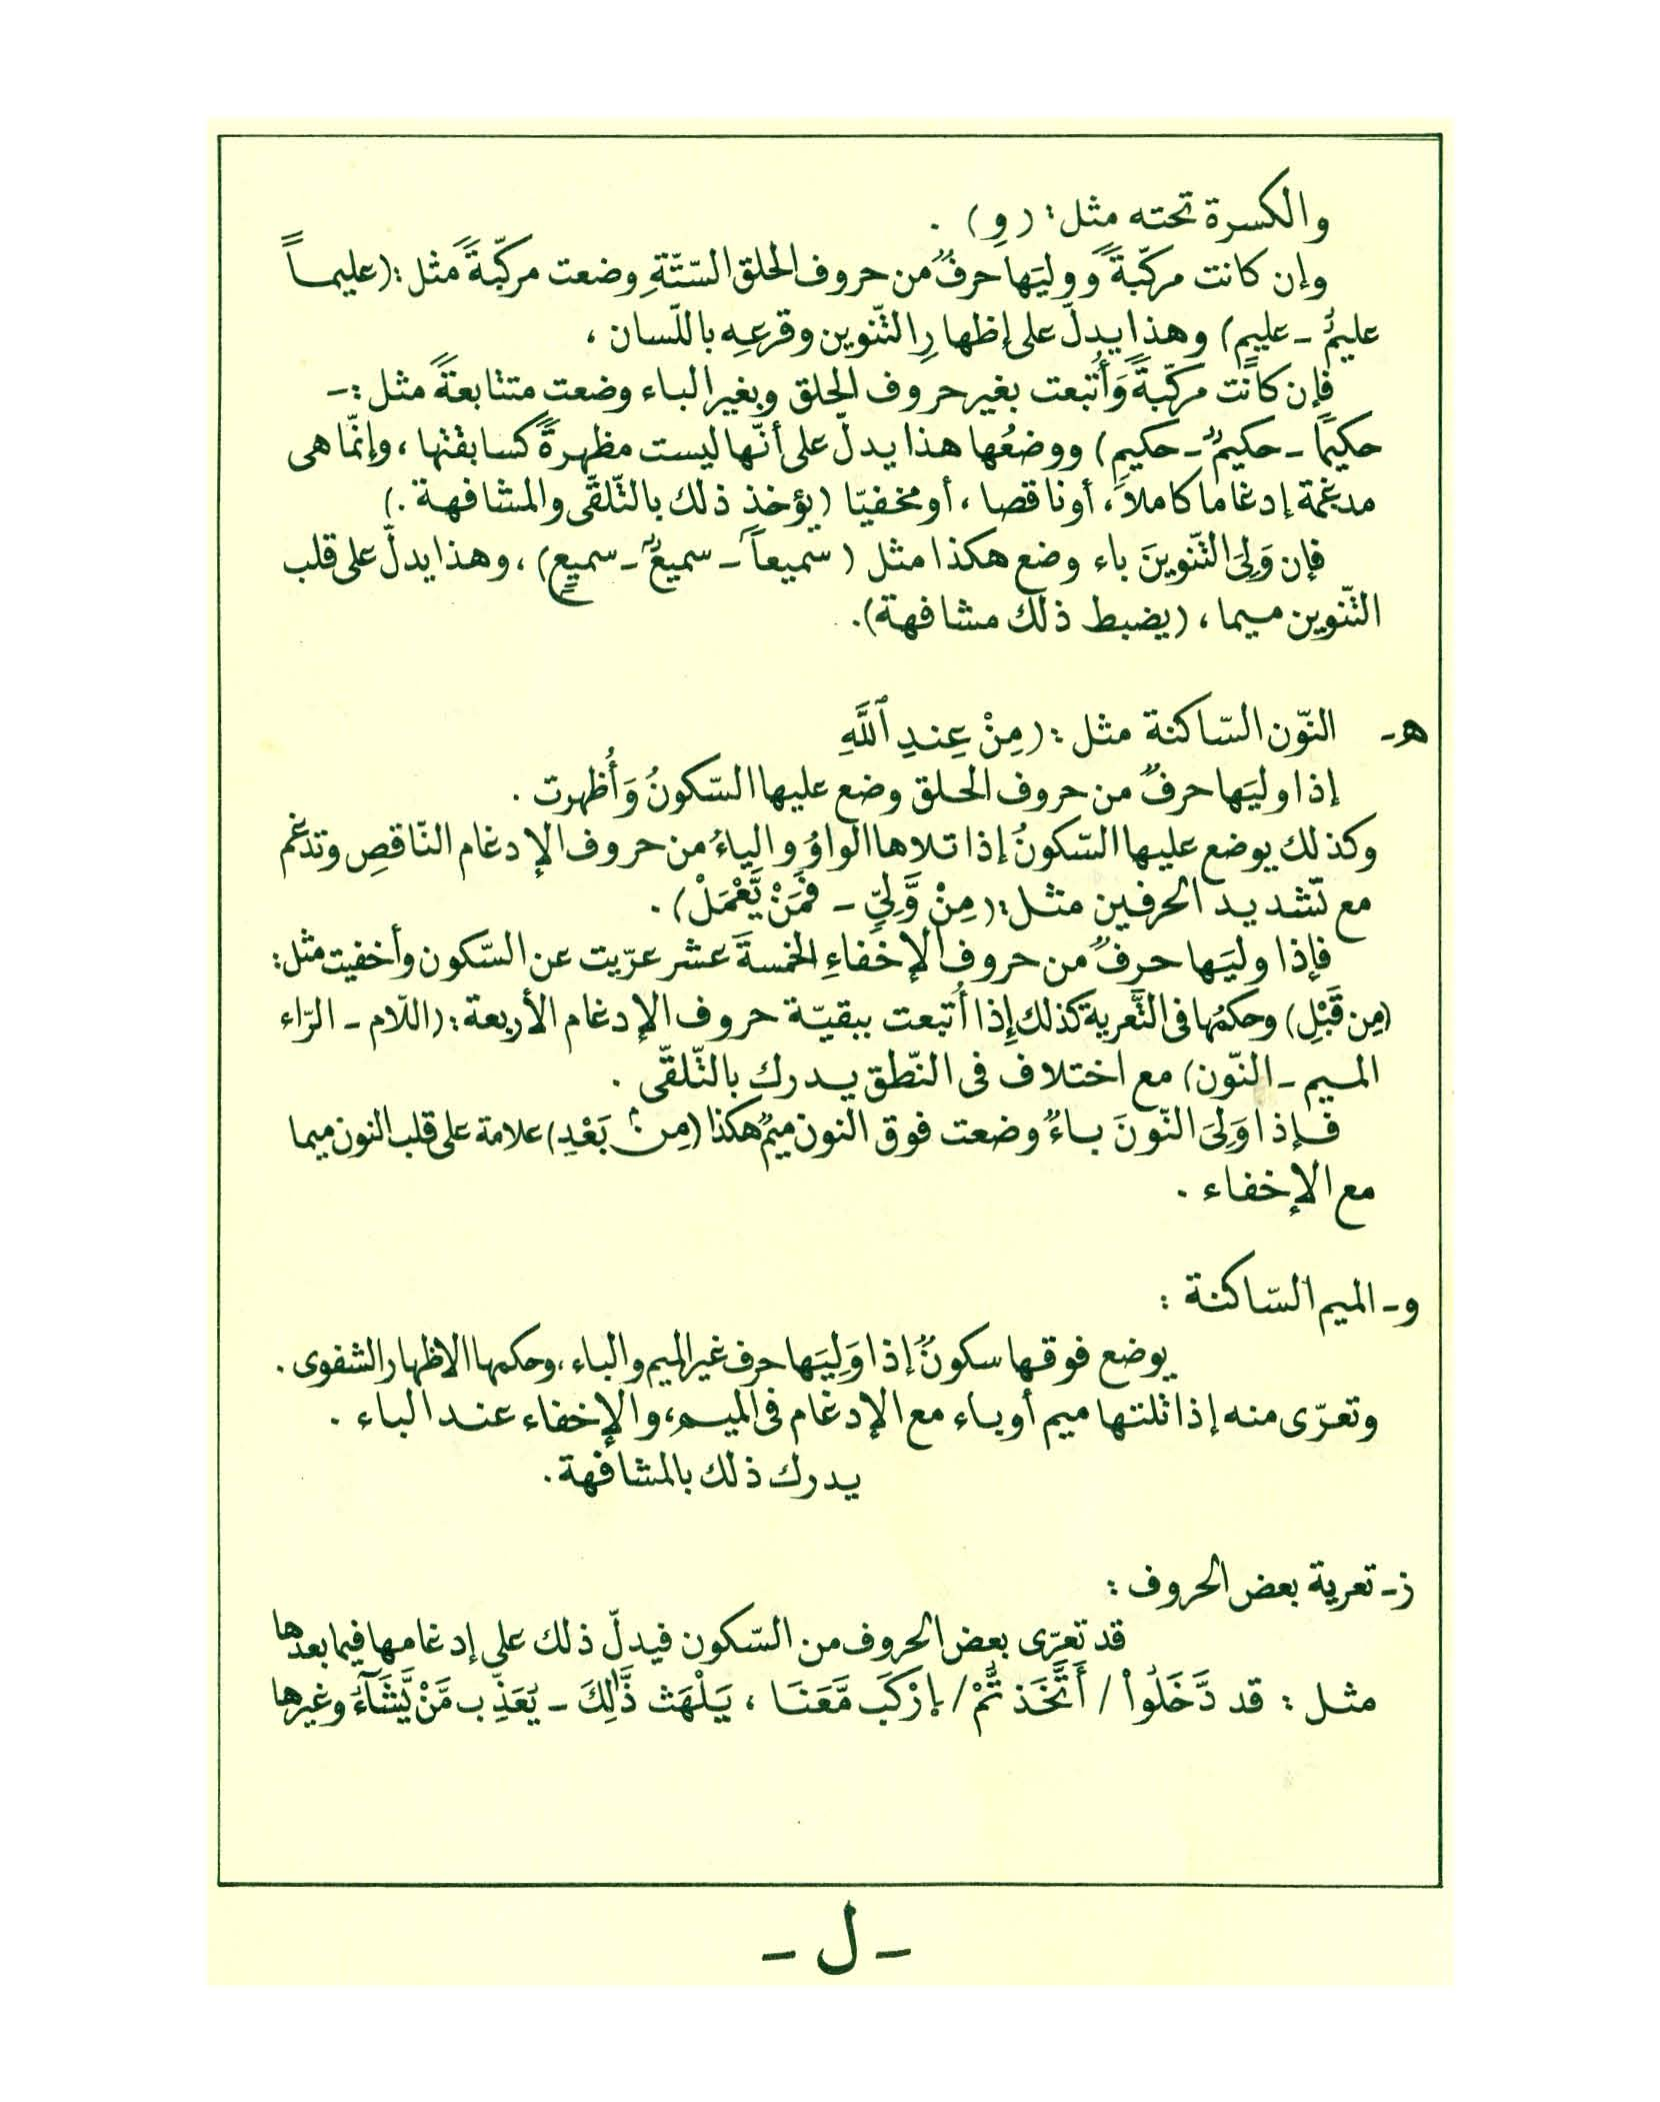 والكسرة تحته مثل: (وِ) .
وإن كانت مركّبةً وَوليَها حرفٌ من حروف الحلق السّتّةِ وضعت مركّبةً مثل: (عليماً
عليمٌ - عليمٍ) وهذا يدلّ على إظهارِ التّنوين وقرعِه باللّسان ،
فإن كانت مركّبةً وَأُتبعت بغير حروف الحلق وبغير الباء وضعت متتابعةً مثل :-
حكيماً - حكيمٌ - حكيمٍ) ووضعُها هذا يدلّ على أنّها ليست مظهرةً كسابقتها ، وإنّما هى
مدغمة إدغاما كاملاً ، أو ناقصا ، أو مخفيّا (يؤخذ ذلك بالتّلقّى والمشافهة .)
فإن وَلِىَ التّنوينَ باء وضع هكذا مثل (سميعاً - سميعٌ - سميعٍ) ، وهذا يدلّ على قلب
التّنوين ميما ، (يضبط ذلك مشافهة).
هـ- النّون السّاكنة مثل : (مِنْ عِندِ ٱللَّهِ
إذا وليَها حرفٌ من حروف الحلق وضع عليها السّكونُ وَأُظهرت .
وكذلك يوضع عليها السّكونُ إذا تلاها الواوُ والياءُ من حروف الإدغام النّاقصِ وتدغم
مع تشديد الحرفين مثل: (مِنْ وَّلِىٍّ - فَمَنْ يَّعْمَلْ) .
فإذا وليَها حرفٌ من حروف الإخفاءِ الخمسةَ عشر عرّيت عن السّكون وأخفيت مثل:
(مِن قَبْلِ) وحكمُها فى التَّعرية كذلك إِذا أُتبعت ببقيّة حروف الإدغام الأربعة: (اللّام - الرّاء
الميم - النّون) مع اختلاف فى النّطق يدرك بالتّلقّى .
فإذا وَلِىَ النّونَ باءٌ وضعت فوق النون ميمٌ هكذا (مِنۢ بَعْدِ) علامة على قلب النون ميما
مع الإخفاء .
و- الميم السّاكنة :
يوضع فوقها سكونٌ إذا وَلِيَها حرف غير الميم والباء ، وحكمها الاظهار الشفوى .
وتعرّى منه إذا تلتها ميم أو باء مع الإدغام فى الميم ، والإخفاء عند الباء .
يدرك ذلك بالمشافهة .
ز- تعرية بعض الحروف :
قد تعرّى بعض الحروف من السّكون فيدلّ ذلك على إدغامها فيما بعدها
مثل : قد دَّخَلُواْ / أَتَّخَذتُّمْ / اِرْكَب مَّعَنَا ، يَلْهَث ذَّٰلِكَ - يُعَذِّب مَّنْ يَّشَآءُ وغيرها
- ل -